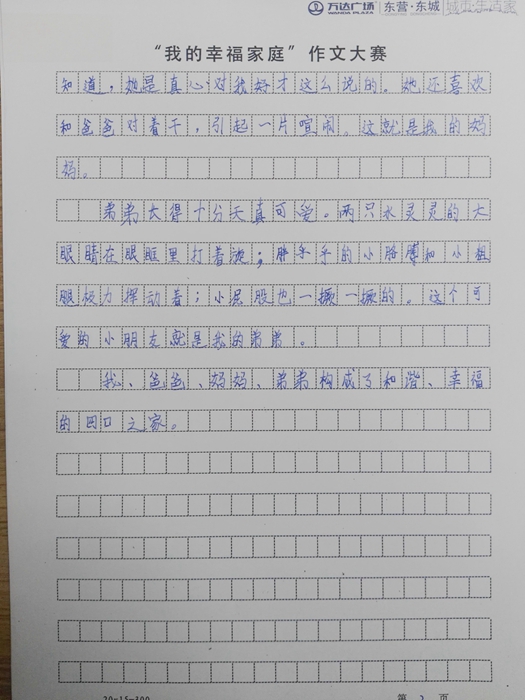 万达广场 WANDA PLAZA 东营·东城 城市生活家
“我的幸福家庭”作文大赛
知道，她是真心对我好才这么说的。她还喜欢
和爸爸对着干，引起一片喧闹。这就是我的妈
妈。
弟弟长得十分天真可爱。两只水灵灵的大
眼睛在眼眶里打着漩；胖乎乎的小胳膊和小粗
腿极力挥动着；小屁股也一撅一撅的。这个可
爱的小朋友就是我的弟弟。
我、爸爸、妈妈、弟弟构成了和谐、幸福
的四口之家。
20×15=300 第 2 页